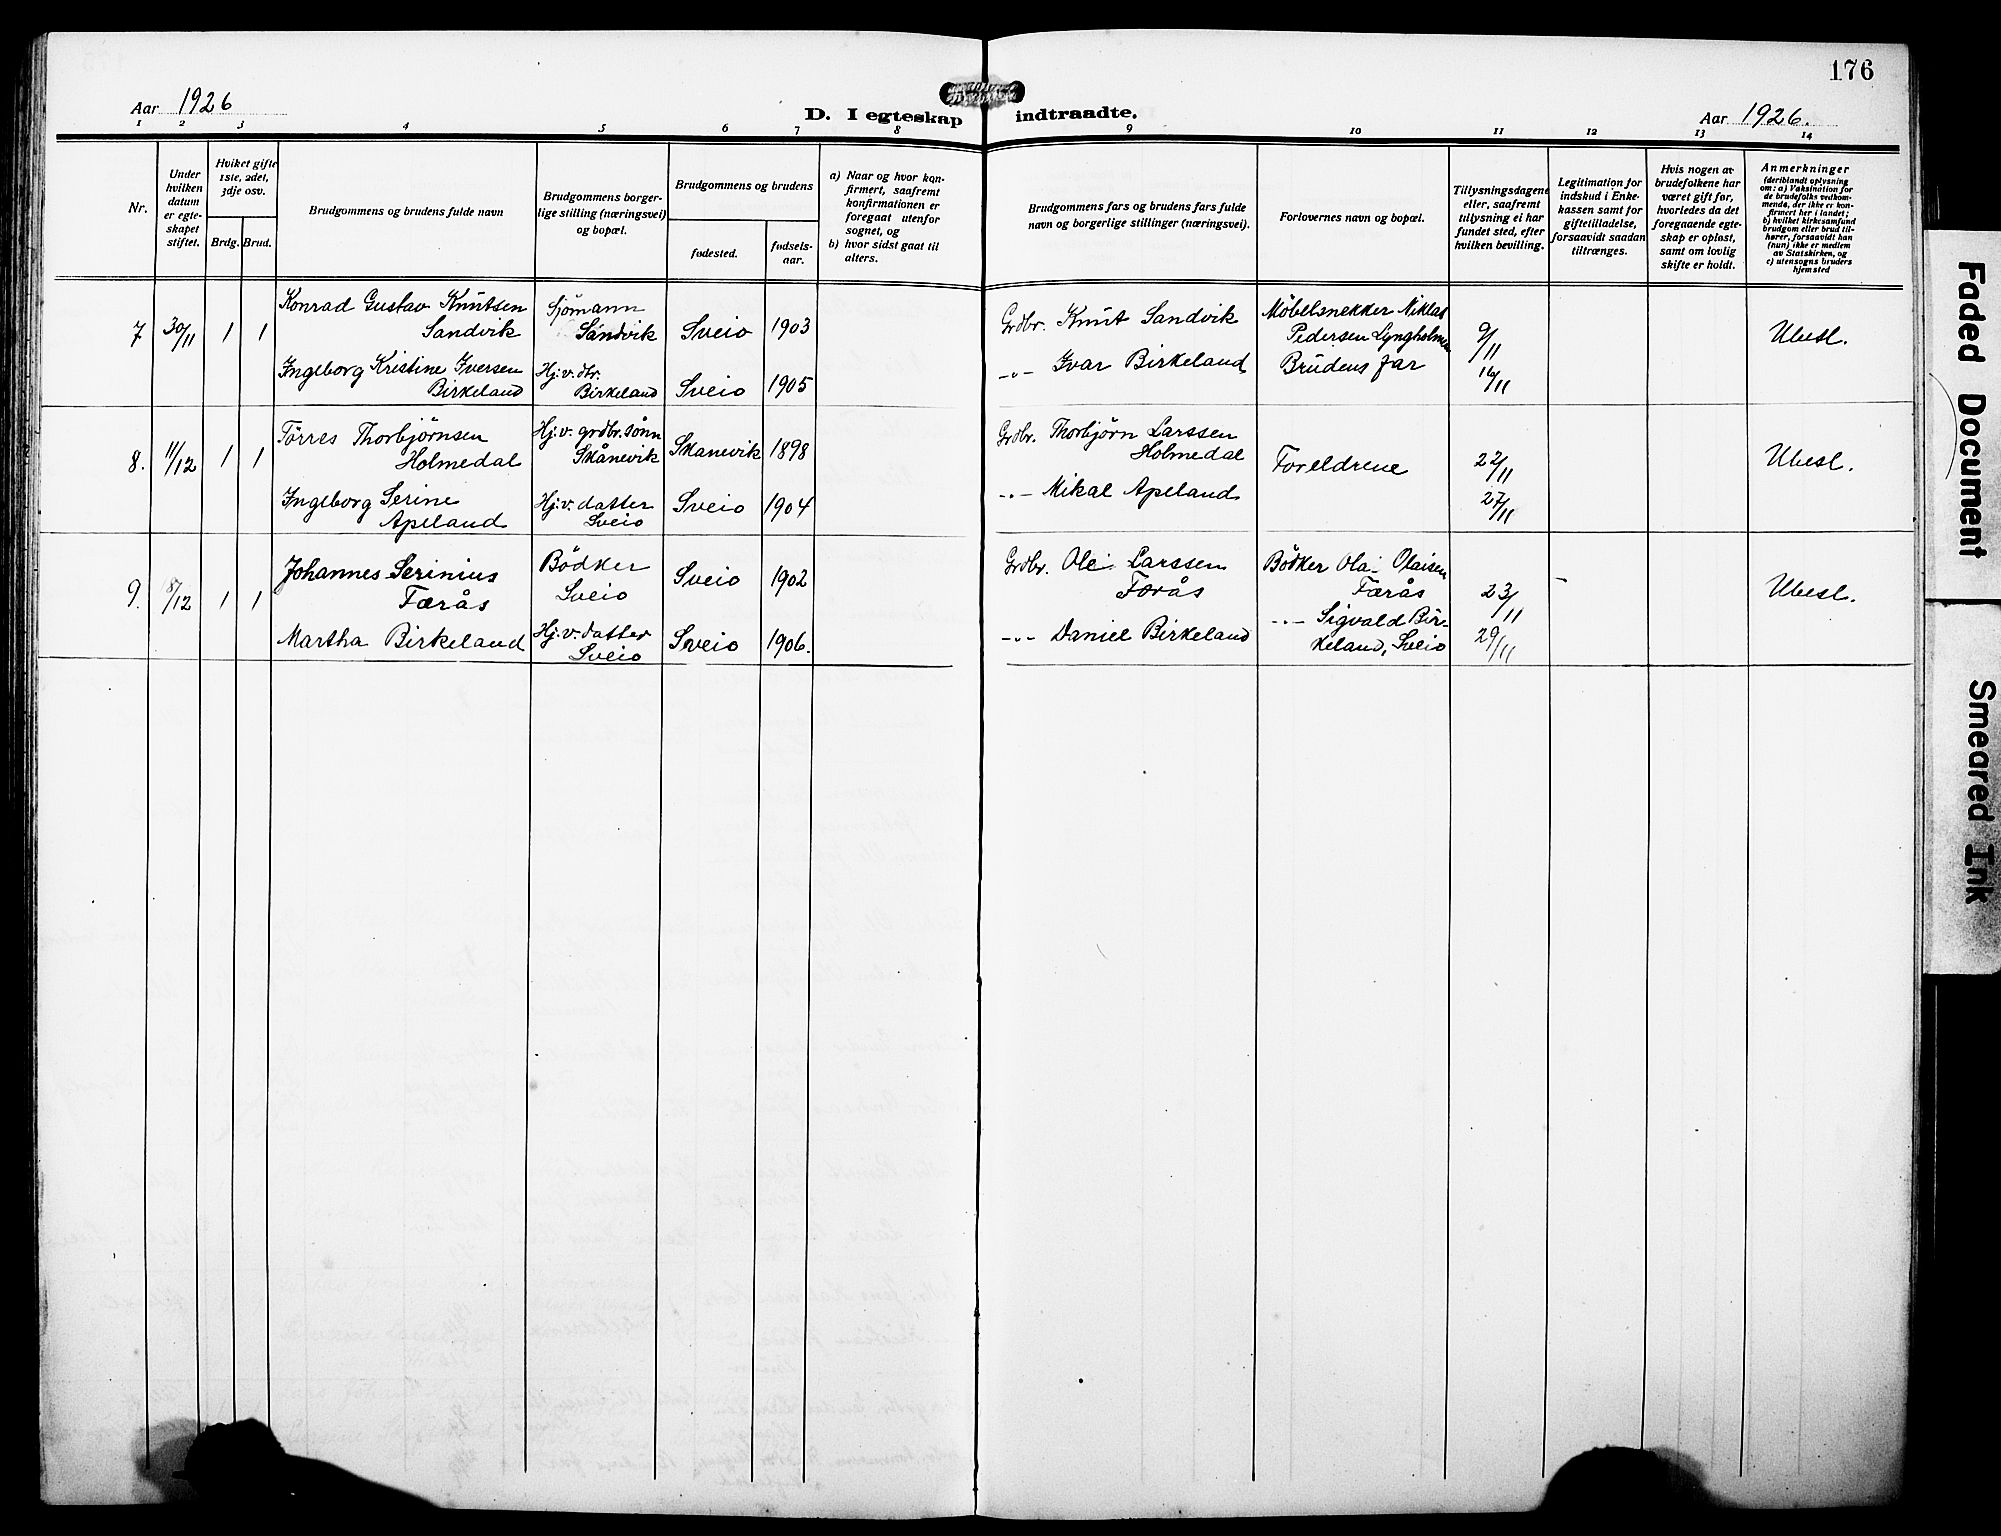 176
Aar 1926
D. I egteskap indtraadte.
Aar 1926.
1 2 3 4 5 6 7 8 9 10 11 12 13 14
Nr.
Under
hvilken
datum
er egte-
skapet
stiftet.
Hvilket gifte
1ste, 2det,
3dje osv.
Brdg.
Brud.
Brudgommens og brudens fulde navn
Brudgommens borger-
lige stilling (næringsvei)
og bopæl.
Brudgommens og brudens
fødested.
fødsels-
aar.
a) Naar og hvor kon-
firmert, saafremt
konfirmationen er
foregaat utenfor
sognet, og
b) hvor sidst gaat til
alters.
Brudgommens fars og brudens fars fulde
navn og borgerlige stillinger (næringsvei).
Forlovernes navn og bopæl.
Tillysningsdagene
eller, saafremt
tillysning ei har
fundet sted, efter
hvilken bevilling.
Legitimation for
indskud i Enke-
kassen samt for
giftetilladelse,
forsaavidt saadan
tiltrænges.
Hvis nogen av
brudefolkene har
været gift før,
hvorledes da det
foregaaende egte-
skap er opløst,
samt om lovlig
skifte er holdt.
Anmerkninger
(deriblandt oplysning
om: a) Vaksination for
de brudefolks vedkom-
mende, der ikke er kon-
firmert her i landet;
b) hvilket kirkesamfund
brudgom eller brud til-
hører, forsaavidt han
(hun) ikke er medlem
av Statskirken, og
c) utensogns bruders
hjemsted
7 30/11 1 1
Konrad Gustav Knutsen
Sandvik
Sjömann
Sandvik
Sveio 1903
Grdbr. Knut Sandvik
Möbelsnekker Niklas
Pedersen Lyngholmen
9/11
Ubesl.
Ingeborg Kristine Iversen
Birkeland
Hj. v. dtr.
Birkeland
Sveio 1905
-"- Ivar Birkeland
Brudens far
16/11
8. 11/12 1 1
Törres Thorbjörnsen
Holmedal
Hj. v. grdbr. sönn
Skånevik
Skanevik 1898
Grdbr. Thorbjörn Larssen
Holmedal
Foreldrene
22/11
Ubesl.
Ingeborg Serine
Apeland
Hj. v. datter
Sveio
Sveio 1904
-"- Mikal Apeland
27/11
9. 18/12 1 1
Johannes Serinius
Færås
Bödker
Sveio
Sveio 1902
Grdbr. Ole Larssen
Færås
Bödker Ola Olaisen
Færås
23/11
Ubesl.
Martha Birkeland
Hj. v. datter
Sveio
Sveio 1906.
-"- Daniel Birkeland
-"- Sigvald Bir-
keland, Sveio
29/11
Faded Document
Smeared Ink